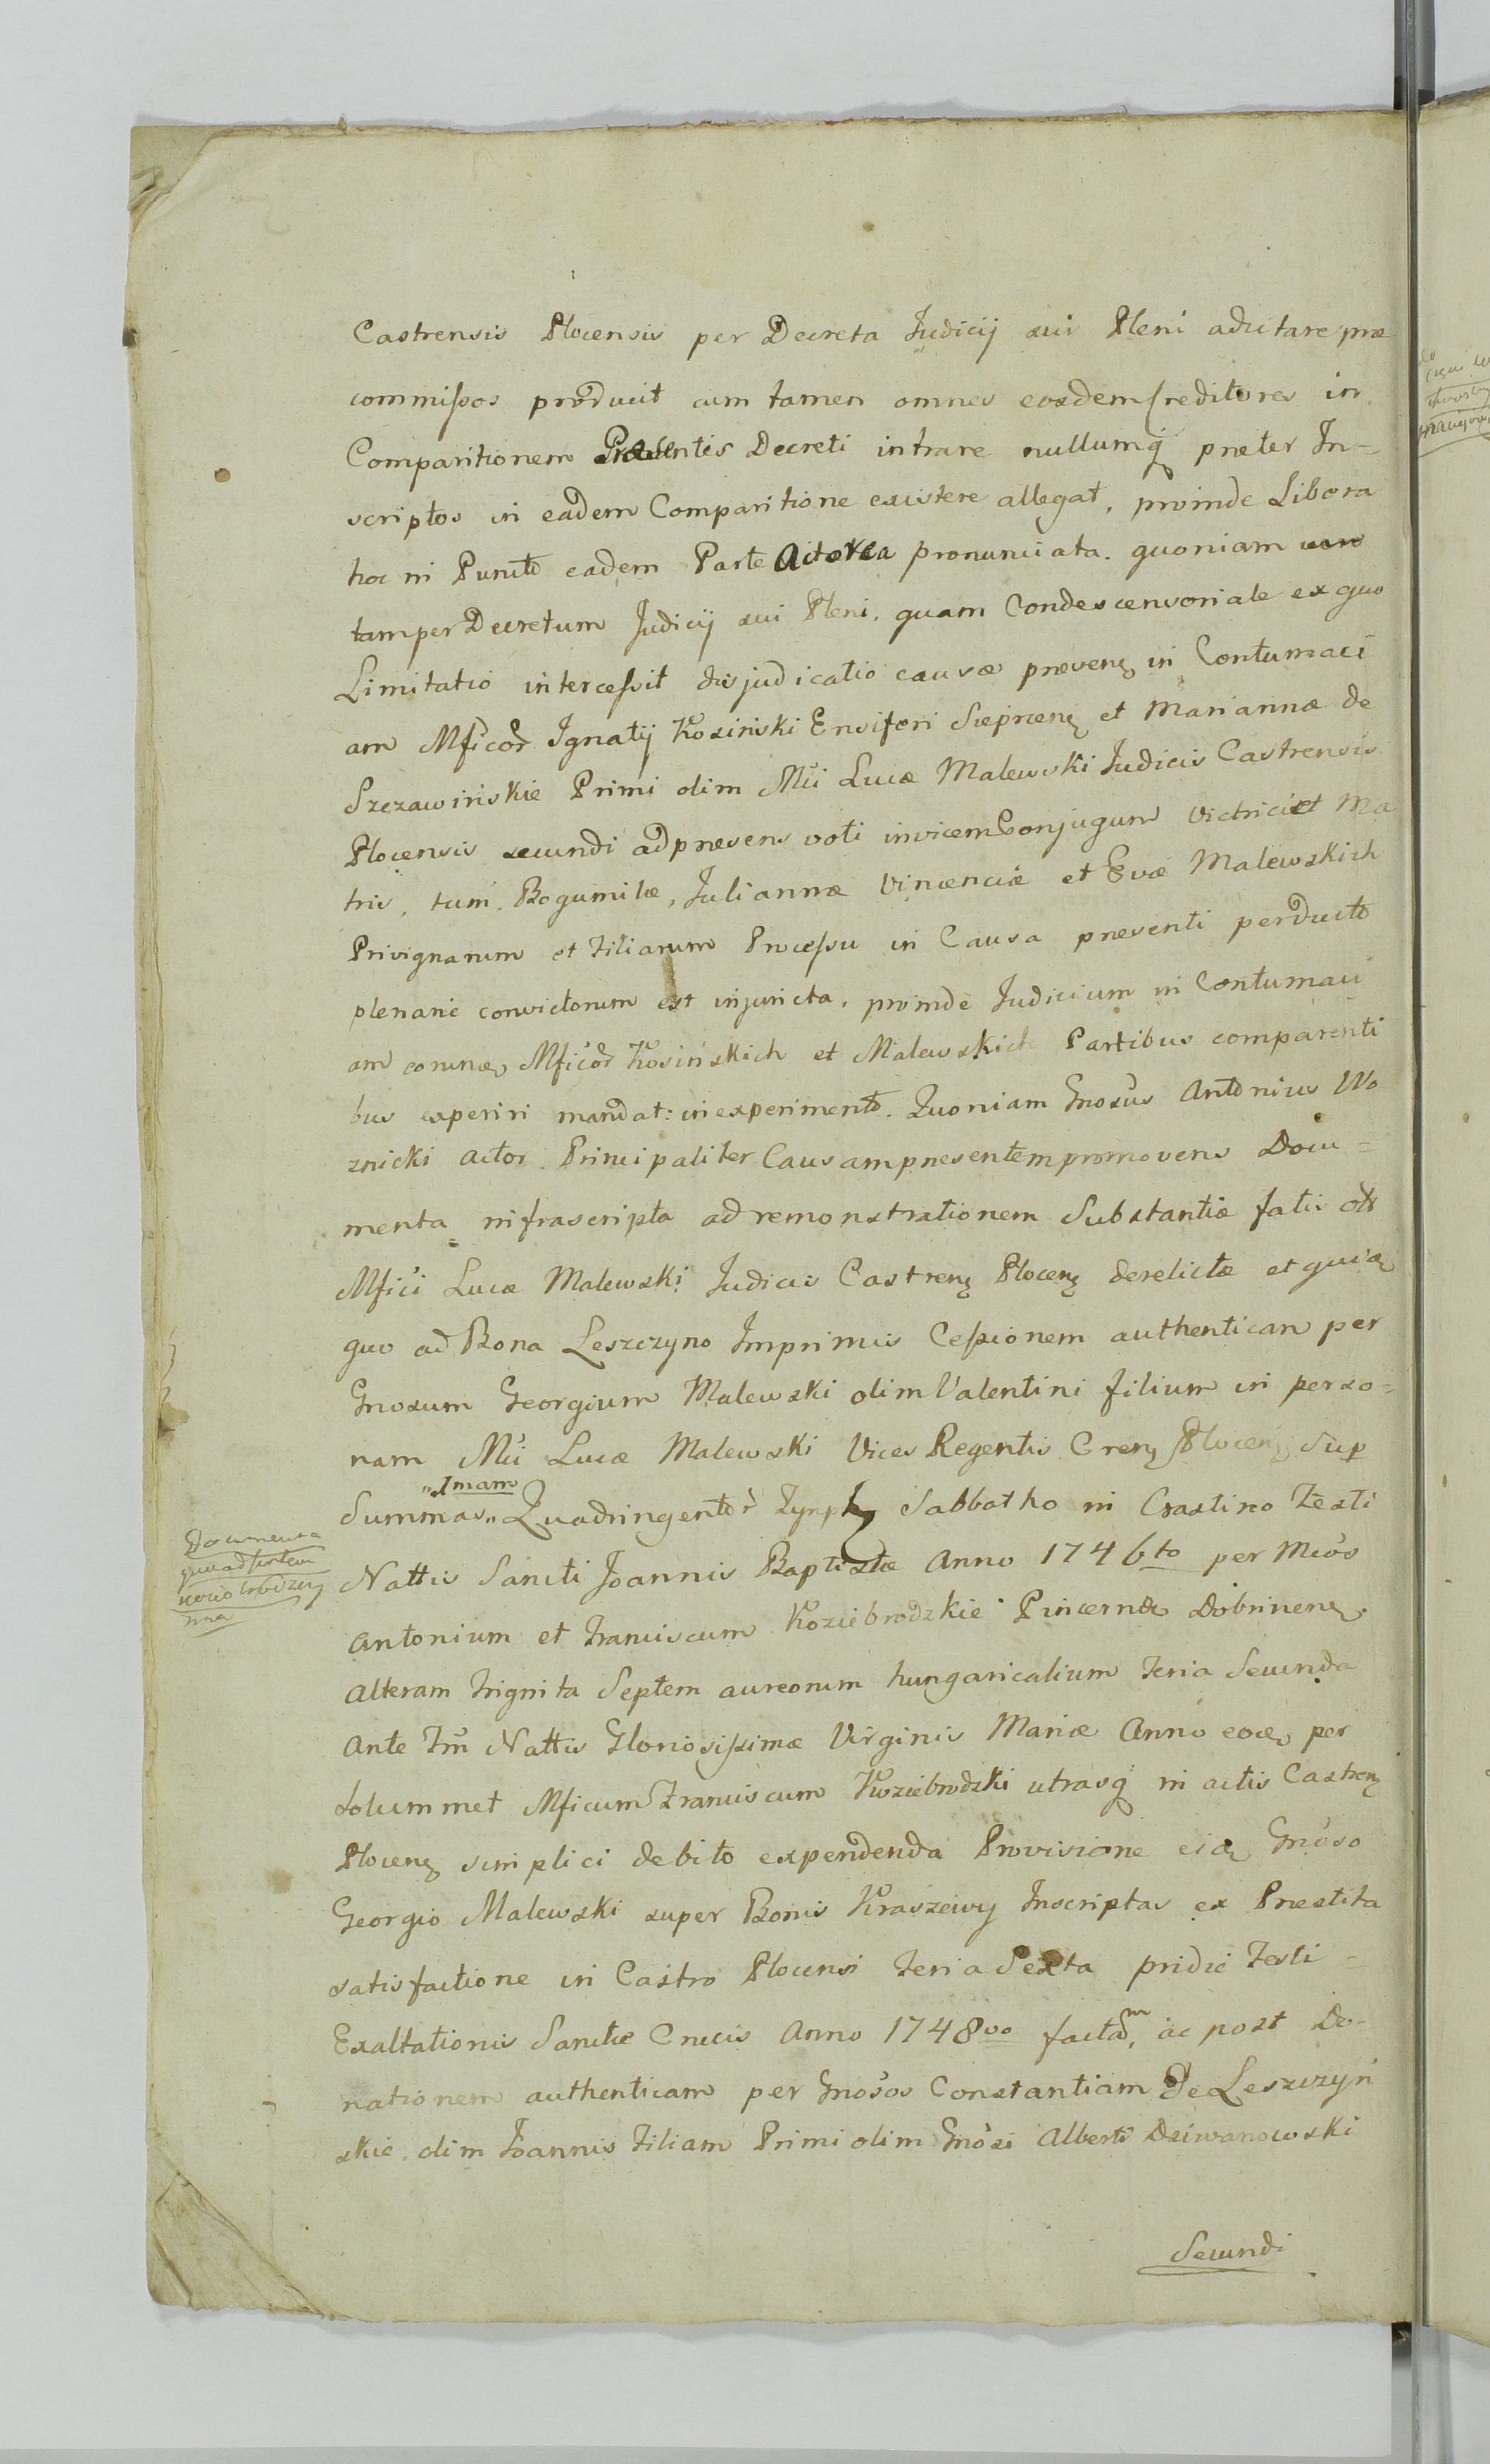 Castrensis Plocensis per Decreta Judicij sui Pleni adcitare præ
commissos producit cum tamen omnes eosdem Creditores in
Comparitionem Præsentis Decreti intrare nullumq́ præter In-
scriptos in eadem Comparitione existere allegat, proinde Libera
hoc in Puncto eadem Parte Actorea pronunciata. quoniam
tam per Decretum Judicij sui Pleni, quam Condescensoriale ex quo
Limitatio intercessit disjudicatio causæ præsenę in Contumaci
am Mficor Ignatij Kosiński Ensiferi Sieprcenę et Mariannæ de
Szczawińskie Primi olim Mći Lucæ Malewski Judicis Castrensis
Plocensis secundi ad præsens voti invicem Conjugum Victricis et Ma
tris, tum Bogumilæ, Juliannæ Vincenciæ et Evæ Malewskich
Privignarum et Filiarum Processu in Causa præsenti perducto
plenarie convictorum est injuncta, proinde Judicium in Contumaci
am eorundę Mficor Kosińskich et Malewskich Partibus comparenti
bus experiri mandat: in experimento. Quoniam Gnosus Antonius Wo
znicki Actor Principaliter Causam præsentem promovens Docu=
menta infrascripta ad remonstrationem Substantiæ fatis
Mfici Lucæ Malewski Judicis Castrenę Plocenę derelictæ et quidę
quo ad Bona Leszczyno Imprimis Cessionem authenticam per
Gnosum Georgium Malewski olim Valentini filium in perso=
nam Mći Lucæ Malewski Vices Regentis Crenę Plocenę Sup
"1mam
Summas,, Quadringentor Tynph Sabbatho in Crastino Festi
Nattis Sancti Joannis Baptistæ Anno 1746to per Mcos
Antonium et Franciscum Koziebrodzkie Pincernæ Dobrinenę.
Alteram Triginta Septem aureorum hungaricalium Feria Secunda
Ante Fm Nattis Gloriosissimæ Virginis Mariæ Anno eodę per
solummet Mficum Franciscum Koziebrodzki utrasq́ in actis Castrenę
Plocenę simplici debito expendenda Provisione eidę Gnoso
Georgio Malewski super Bonis Kraszewy Inscriptas ex Præstita
satisfactione in Castro Plocensi Feria Sexta pridie Festi =
Exaltationis Sanctæ Crucis Anno 1748vo factam, ac post Do-
nationem authenticam per Gnosos Constantiam De Leszczyń
skie olim Joannis Filiam Primi olim Gnosi Alberti Dziwanowski
Secundi
Documenta
quoad sortem